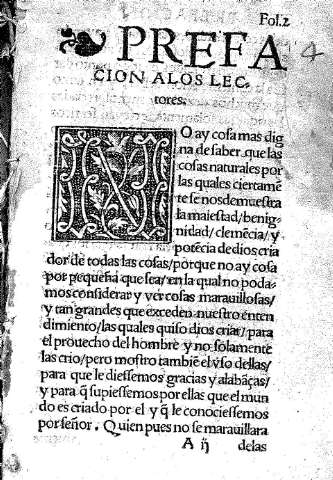 Fol.2
4
PREFA
CION ALOS LEC-
tores.
NO ay cosa mas dig
na de saber que las
cosas naturales por
las quales ciertamẽ
te se nos demuestra
la maiestad/ benig-
nidad/ clemẽcia/ y
potẽcia de dios cria
dor de todas las cosas/ porque no ay cosa
por pequeña que sea/ en la qual no poda-
mos considerar y ver cosas marauillosas/
y tan grandes que exceden nuestro enten
dimiento/ las quales quiso dios criar/ para
el prouecho del hombre y no solamente
las crio/ pero mostro tambiẽ el vso dellas/
para que le diessemos gracias y alabãças/
y para q̃ supiessemos por ellas que el mun
do es criado por el y q̃ le conociessemos
por señor. Quien pues no se marauillara
A ij
delas